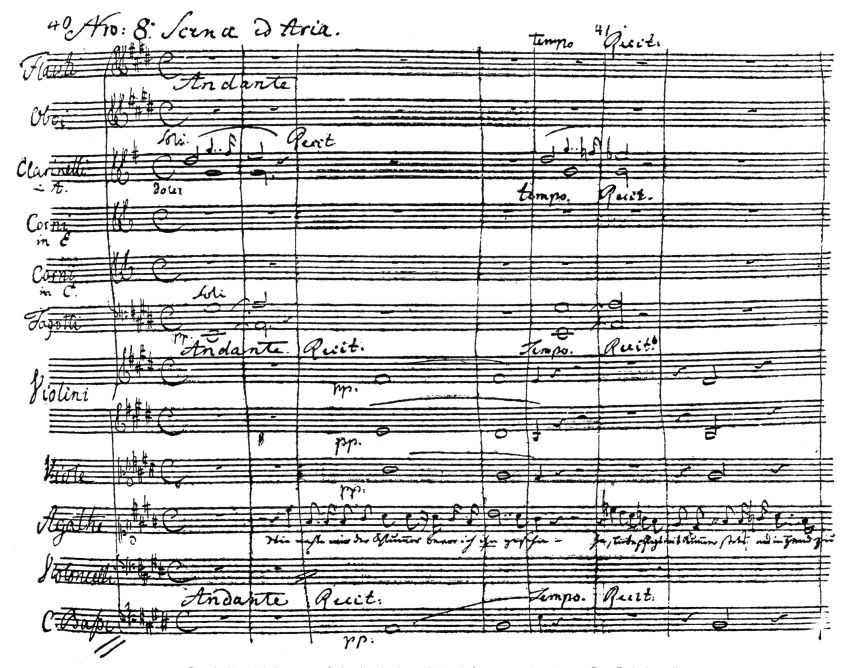 40 Nro: 8. Scena ed Aria.
tempo 41 Recit:
Flauti
Andante
Oboi
Soli. Recit
Clarinetti
in A.
dolce
tempo. Recit.
Corni
in E
Corni
in C.
Soli
Fagotti
pp.
Andante. Recit. Tempo. Recit.
Violini
pp.
pp.
Viole
pp.
Agathe
Wie nahte mir der Schlummer bevor ich ihn gesehn -
Violoncelli
Andante Recit: Tempo. Recit:
C: Bassi
pp: